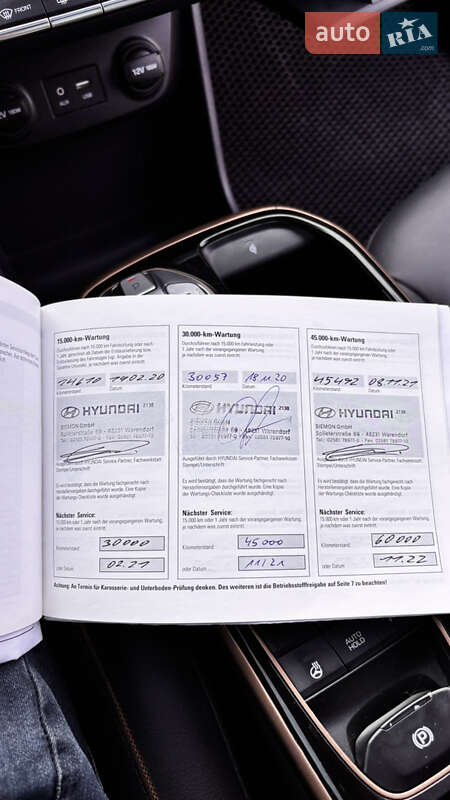 auto RIA.com
FRONT
12V 180W
AUX USB
12V 180W
15.000-km-Wartung
Durchzuführen nach 15.000 km Fahrleistung oder nach
1 Jahr, gerechnet ab Datum der Erstauslieferung bzw.
je nachdem was zuerst eintritt.
14610 19.02.20
Kilometerstand Datum
HYUNDAI 2138
BIEMON GmbH
48231 Warendorf
Ausgeführt durch HYUNDAI Service-Partner, Fachwerkstatt
Stempel/Unterschrift
Es wird bestätigt, dass die Wartung fachgerecht nach
Herstellervorgaben durchgeführt wurde. Eine Kopie
der Wartungs-Checkliste wurde ausgehändigt.
Nächster Service:
15.000 km oder 1 Jahr nach der vorangegangenen Wartung,
je nachdem was zuerst eintritt.
Kilometerstand 30000
oder Datum 02.21
30.000-km-Wartung
Durchzuführen nach 15.000 km Fahrleistung oder
1 Jahr nach der vorangegangenen Wartung,
je nachdem was zuerst eintritt.
30057 18.11.20
Kilometerstand Datum
HYUNDAI 2138
BIEMON GmbH
48231 Warendorf
Ausgeführt durch HYUNDAI Service-Partner, Fachwerkstatt
Stempel/Unterschrift
Es wird bestätigt, dass die Wartung fachgerecht nach
Herstellervorgaben durchgeführt wurde. Eine Kopie
der Wartungs-Checkliste wurde ausgehändigt.
Nächster Service:
15.000 km oder 1 Jahr nach der vorangegangenen Wartung,
je nachdem was zuerst eintritt.
Kilometerstand 45000
oder Datum 11/21
45.000-km-Wartung
Durchzuführen nach 15.000 km Fahrleistung oder
1 Jahr nach der vorangegangenen Wartung,
je nachdem was zuerst eintritt.
45492 08.11.21
Kilometerstand Datum
HYUNDAI 2138
BIEMON GmbH
48231 Warendorf
Ausgeführt durch HYUNDAI Service-Partner, Fachwerkstatt
Stempel/Unterschrift
Es wird bestätigt, dass die Wartung fachgerecht nach
Herstellervorgaben durchgeführt wurde. Eine Kopie
der Wartungs-Checkliste wurde ausgehändigt.
Nächster Service:
15.000 km oder 1 Jahr nach der vorangegangenen Wartung,
je nachdem was zuerst eintritt.
Kilometerstand 60000
oder Datum 11.22
Achtung: An Termin für Karosserie- und Unterboden-Prüfung denken. Des weiteren ist die Betriebsstofffreigabe auf Seite 7 zu beachten!
AUTO
HOLD
P